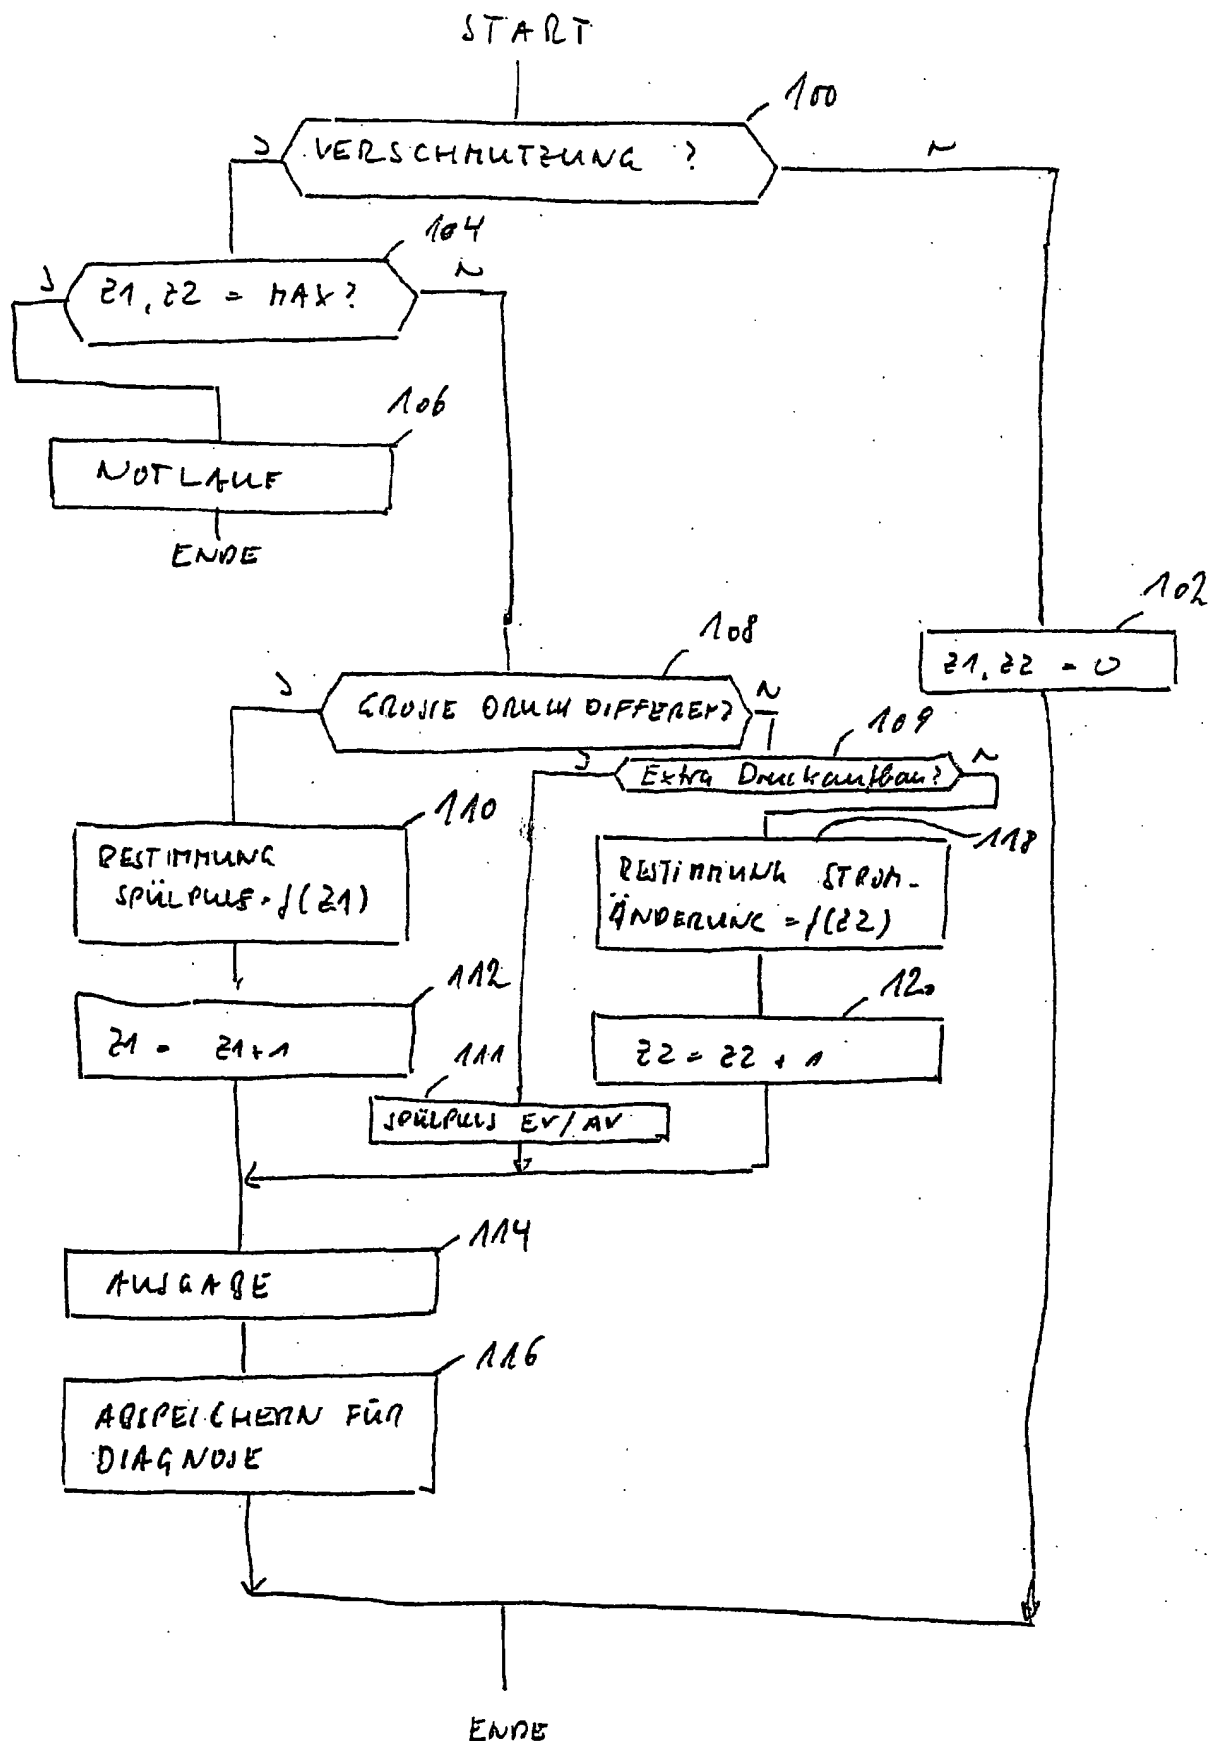 START
100
VERSCHMUTZUNG ?
J
N
104
Z1, Z2 = MAX?
J
N
106
NOTLAUF
ENDE
102
Z1, Z2 = 0
108
GROSSE DRUCKDIFFERENZ?
J
N
109
Extra Druckaufbau?
J
N
110
BESTIMMUNG
SPÜLPULS = f(Z1)
118
BESTIMMUNG STROM-
ÄNDERUNG = f(Z2)
112
Z1 = Z1 + 1
120
Z2 = Z2 + 1
111
SPÜLPULS EV / AV
114
AUSGABE
116
ABSPEICHERN FÜR
DIAGNOSE
ENDE